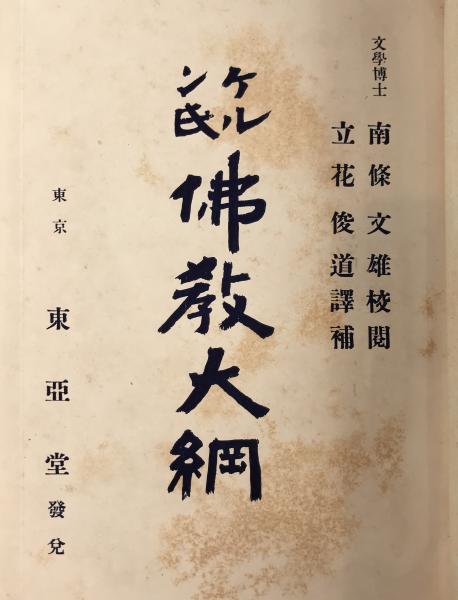 文學博士 南條文雄校閲
立花俊道譯補
ケルン氏佛教大綱
東京 東亞堂發兌